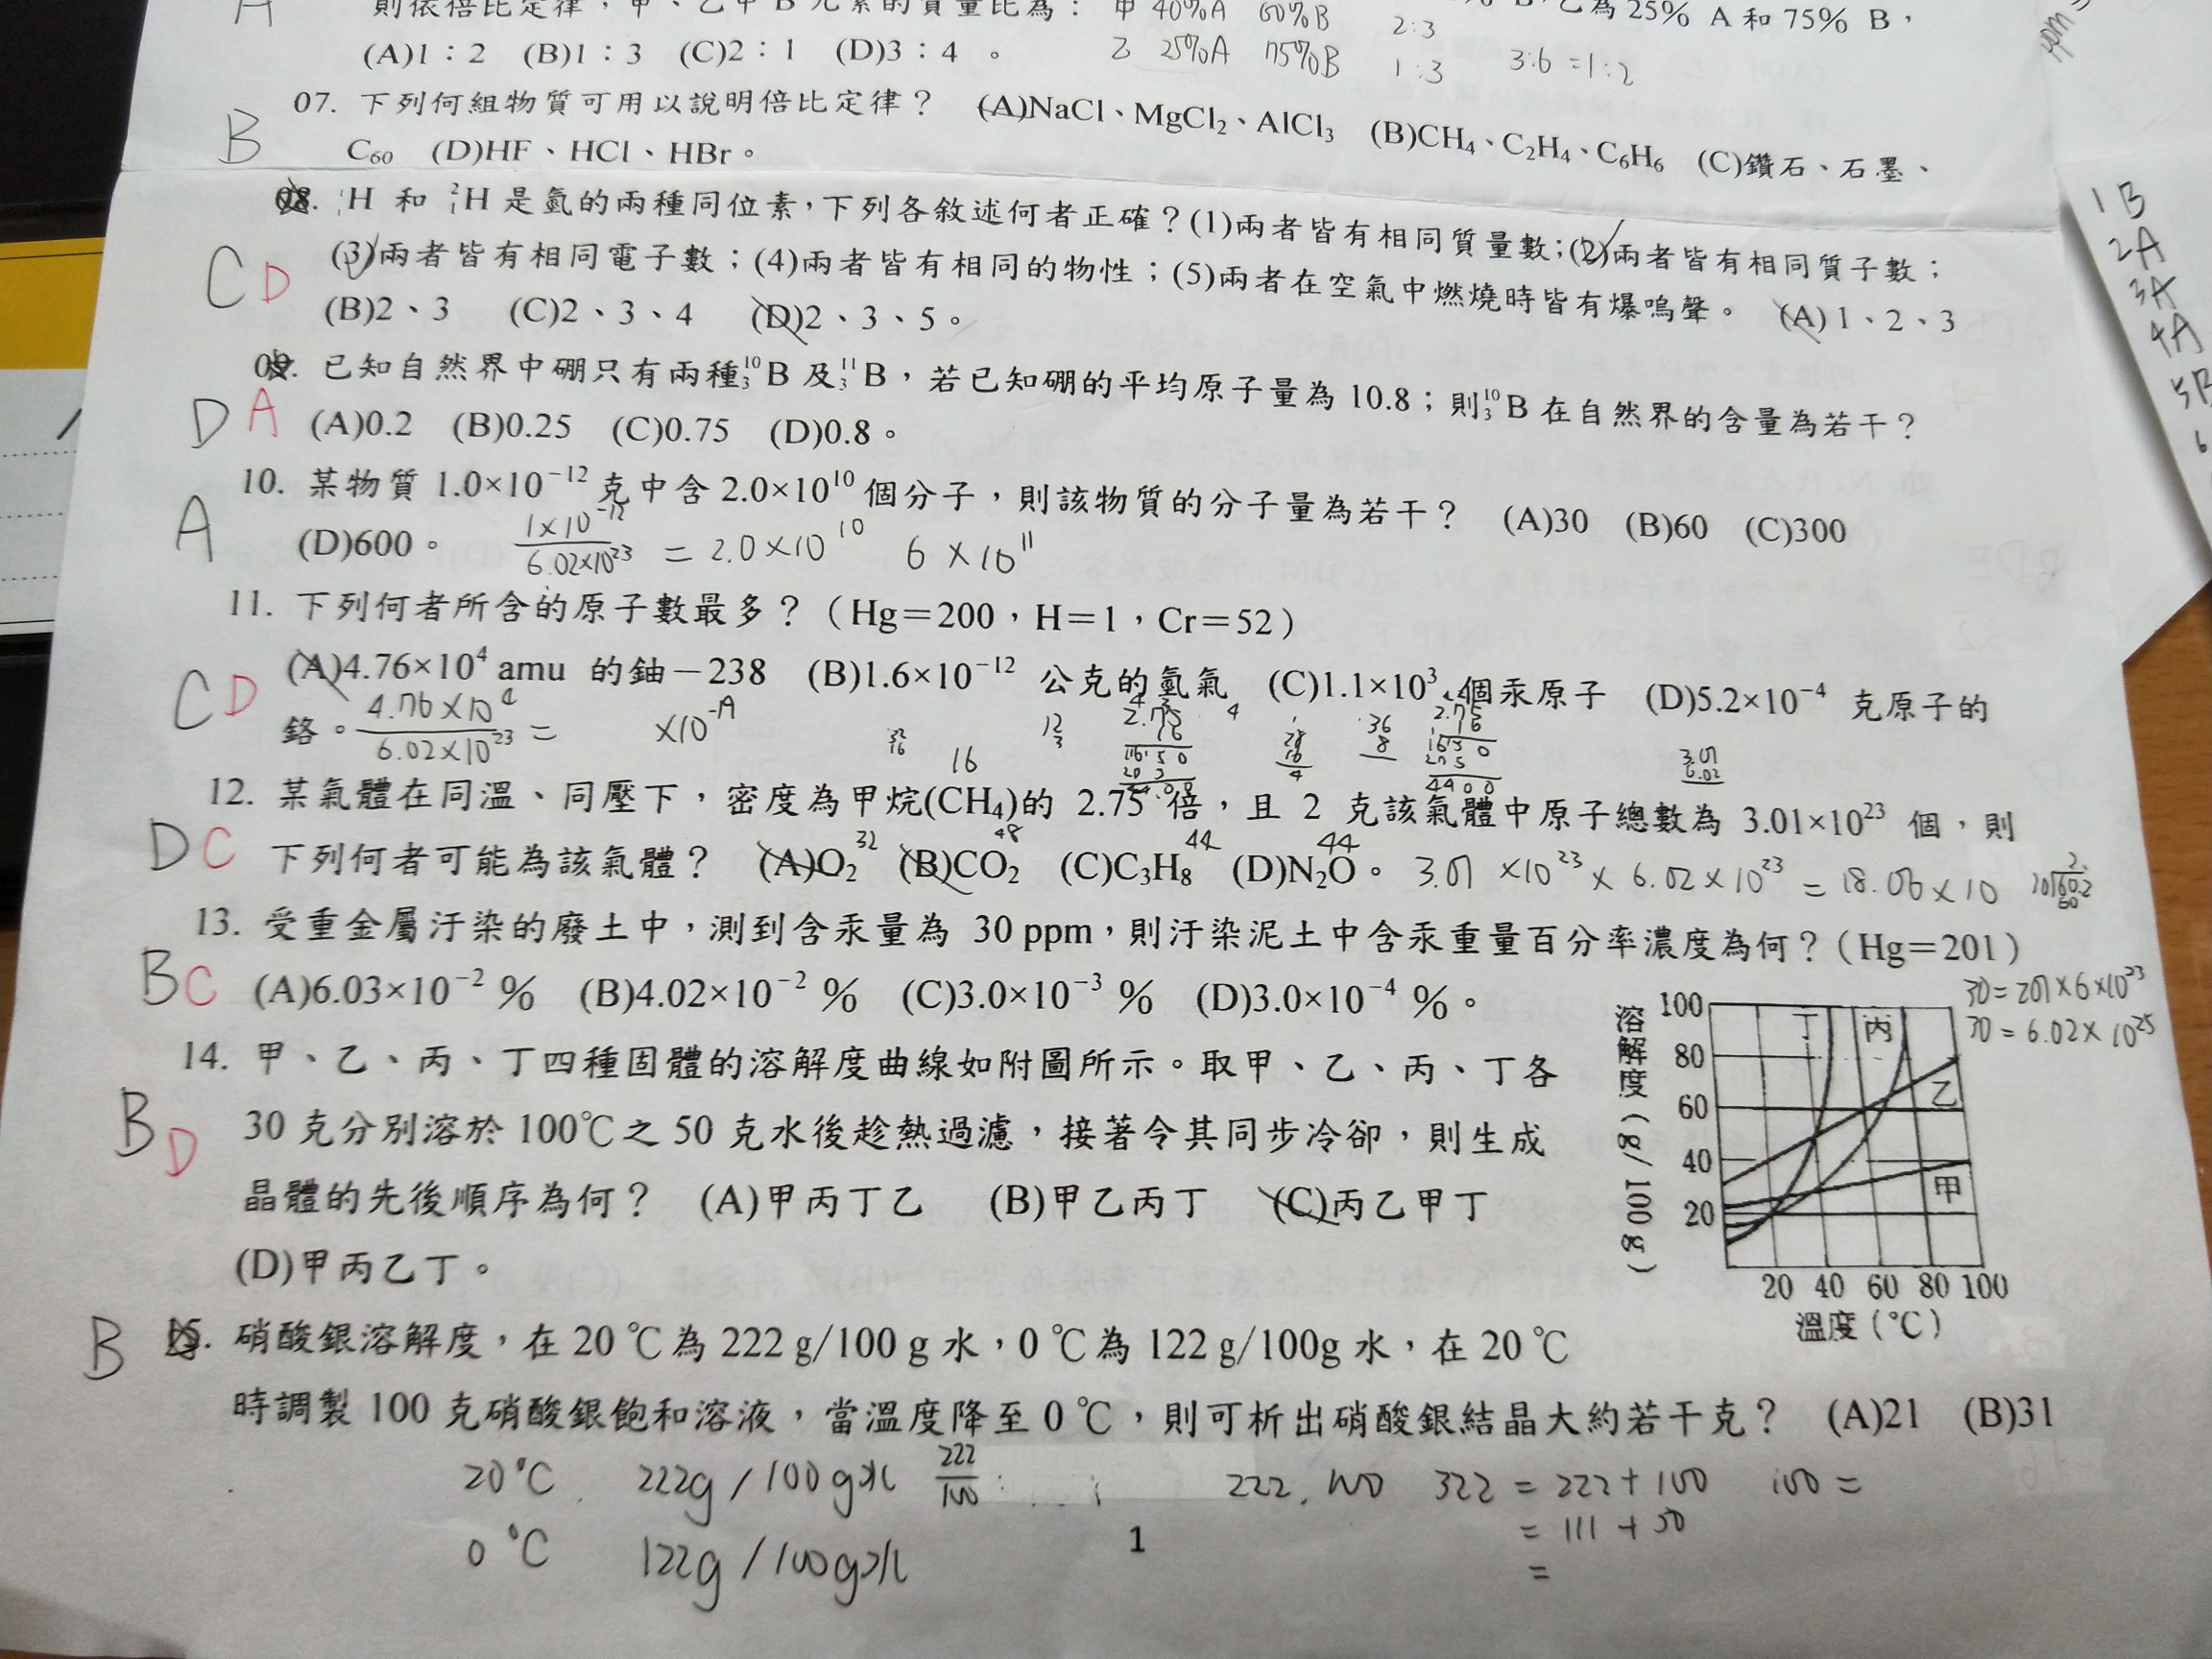 則依倍比定律，甲、乙中B元素的質量比為： 甲 40%A 60%B 2:3 B，乙為25% A 和 75% B，
(A)1：2 (B)1：3 (C)2：1 (D)3：4 。 乙 25%A 75%B 1:3 3:6 =1:2
B 07. 下列何組物質可用以說明倍比定律？ (A)NaCl、MgCl₂、AlCl₃ (B)CH₄、C₂H₄、C₆H₆ (C)鑽石、石墨、
C₆₀ (D)HF、HCl、HBr。
08. ¹₁H 和 ²₁H 是氫的兩種同位素，下列各敘述何者正確？(1)兩者皆有相同質量數；(2)兩者皆有相同質子數；
C D (3)兩者皆有相同電子數；(4)兩者皆有相同的物性；(5)兩者在空氣中燃燒時皆有爆鳴聲。 (A) 1、2、3
(B)2、3 (C)2、3、4 (D)2、3、5。
09. 已知自然界中硼只有兩種¹⁰₃B 及¹¹₃B，若已知硼的平均原子量為 10.8；則¹⁰₃B 在自然界的含量為若干？
D A (A)0.2 (B)0.25 (C)0.75 (D)0.8。
10. 某物質 1.0×10⁻¹² 克中含 2.0×10¹⁰ 個分子，則該物質的分子量為若干？ (A)30 (B)60 (C)300
A (D)600。 1×10⁻¹² / 6.02×10²³ = 2.0×10¹⁰ 6×10¹¹
11. 下列何者所含的原子數最多？（Hg＝200，H＝1，Cr＝52）
C D (A)4.76×10⁴ amu 的鈾－238 (B)1.6×10⁻¹² 公克的氫氣 (C)1.1×10³ 個汞原子 (D)5.2×10⁻⁴ 克原子的
鉻。 4.76×10⁴ / 6.02×10²³ = 16
12. 某氣體在同溫、同壓下，密度為甲烷(CH₄)的 2.75 倍，且 2 克該氣體中原子總數為 3.01×10²³ 個，則
D C 下列何者可能為該氣體？ (A)O₂ 32 (B)CO₂ 48 (C)C₃H₈ 44 (D)N₂O 44。 3.01×10²³×6.02×10²³ = 18.06×10
13. 受重金屬汙染的廢土中，測到含汞量為 30 ppm，則汙染泥土中含汞重量百分率濃度為何？（Hg＝201）
B C (A)6.03×10⁻² % (B)4.02×10⁻² % (C)3.0×10⁻³ % (D)3.0×10⁻⁴ %。
30=201×6×10²³
30=6.02×10²⁵
14. 甲、乙、丙、丁四種固體的溶解度曲線如附圖所示。取甲、乙、丙、丁各
B D 30 克分別溶於 100℃之 50 克水後趁熱過濾，接著令其同步冷卻，則生成
晶體的先後順序為何？ (A)甲丙丁乙 (B)甲乙丙丁 (C)丙乙甲丁
(D)甲丙乙丁。
溶解度(g/100g)
100
80
60
40
20
丁 丙
乙
甲
20 40 60 80 100
溫度(℃)
B 15. 硝酸銀溶解度，在 20 ℃為 222 g/100 g 水，0 ℃為 122 g/100g 水，在 20 ℃
時調製 100 克硝酸銀飽和溶液，當溫度降至 0 ℃，則可析出硝酸銀結晶大約若干克？ (A)21 (B)31
20℃ 222g/100g水 222/100 222, 100 322 = 222+100 100=
= 111+50
0℃ 122g/100g水 =
1
1B
2A
3A
4A
5B
6
ppm